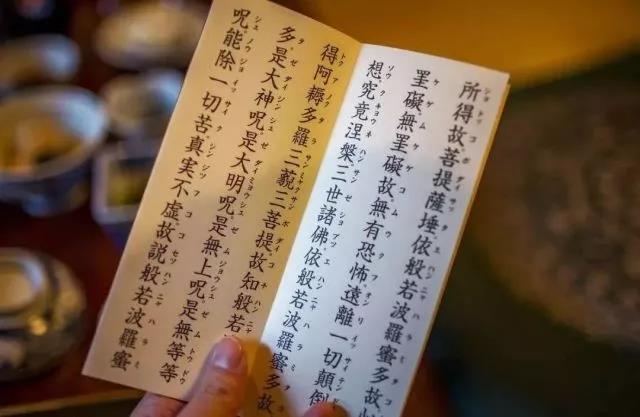 所得故菩提薩埵依般若波羅蜜多故
罣礙無罣礙故無有恐怖遠離一切顛倒
想究竟涅槃三世諸佛依般若波羅蜜多故
得阿耨多羅三藐三菩提故知般若
多是大神呪是大明呪是無上呪是無等等
呪能除一切苦真実不虚故説般若波羅蜜